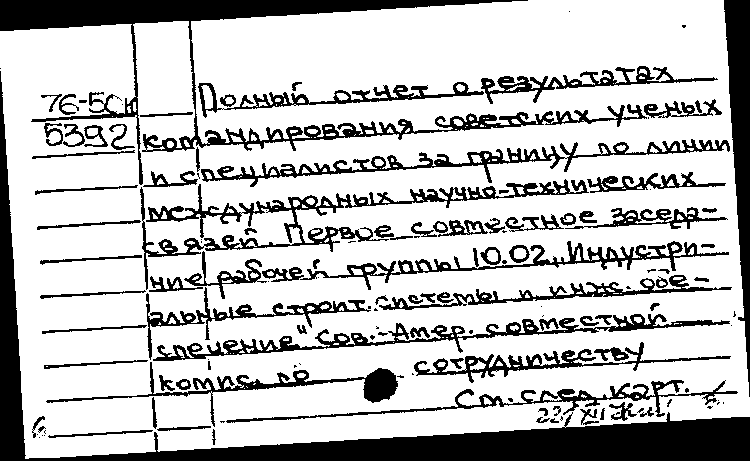 76-5СК
5392
Полный отчет о результатах
командирования советских ученых
и специалистов за границу по линии
международных научно-технических
связей. Первое совместное заседа-
ние рабочей группы 10.02 „Индустри-
альные строит. системы и инж. обе-
спечение" Сов.-Амер. совместной
комис. по сотрудничеству
См. след. карт.
22/XII